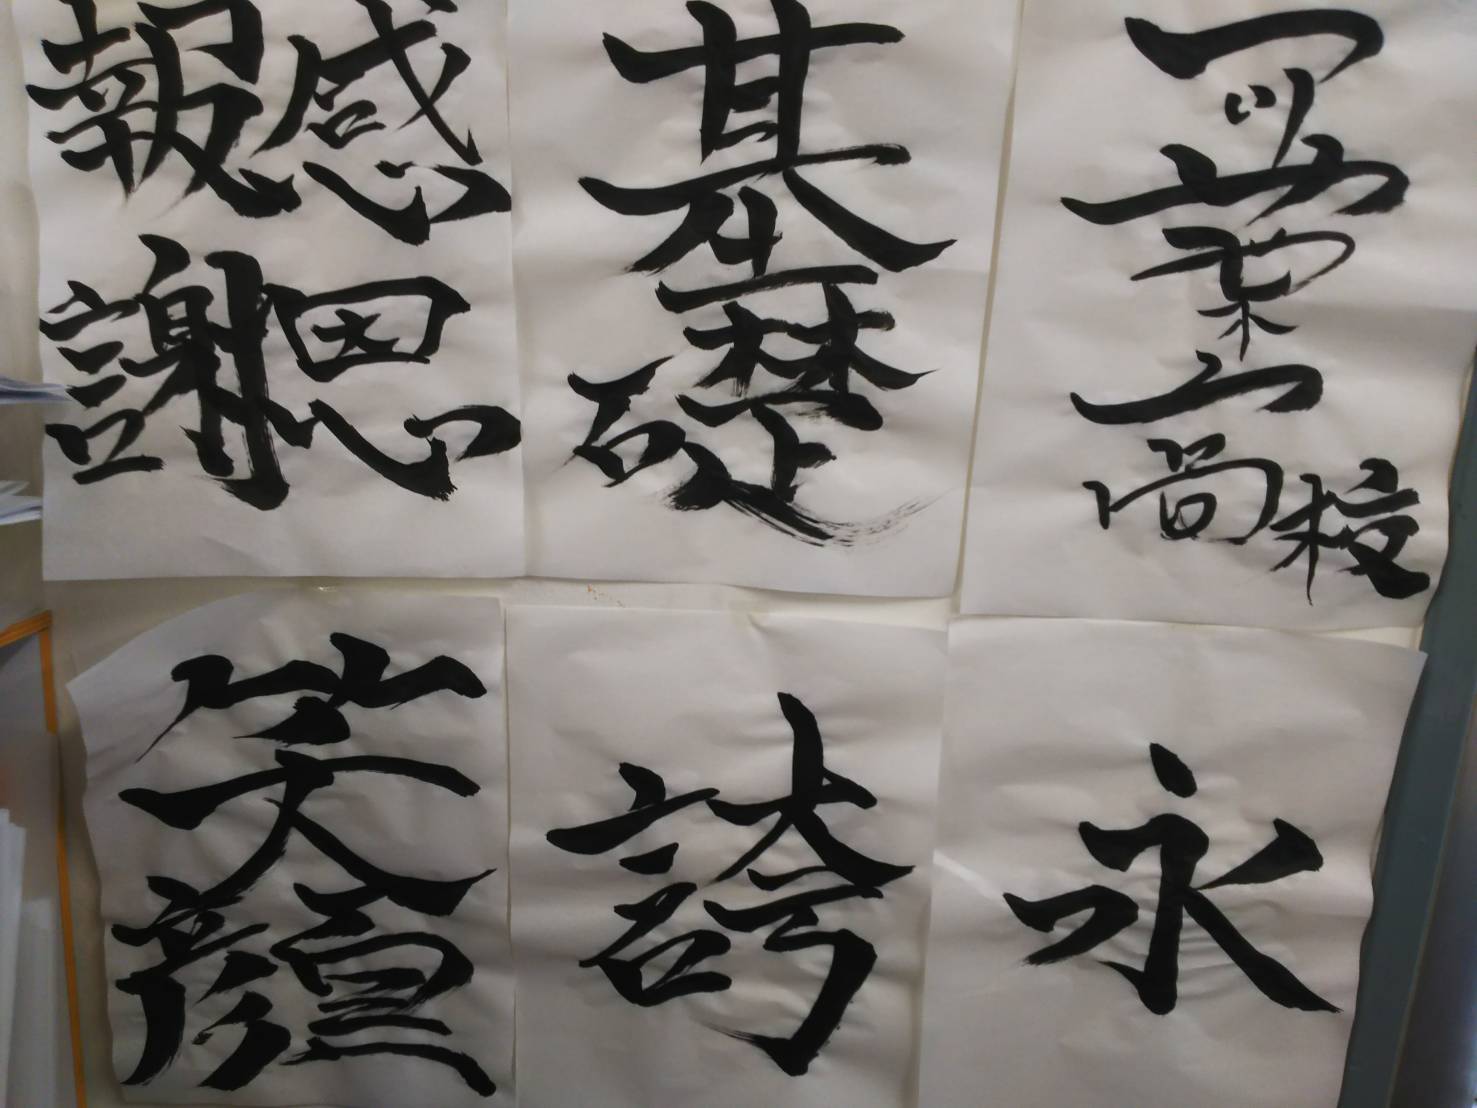 一ツ葉高校
基礎
感恩
報謝
永
誇
笑顔